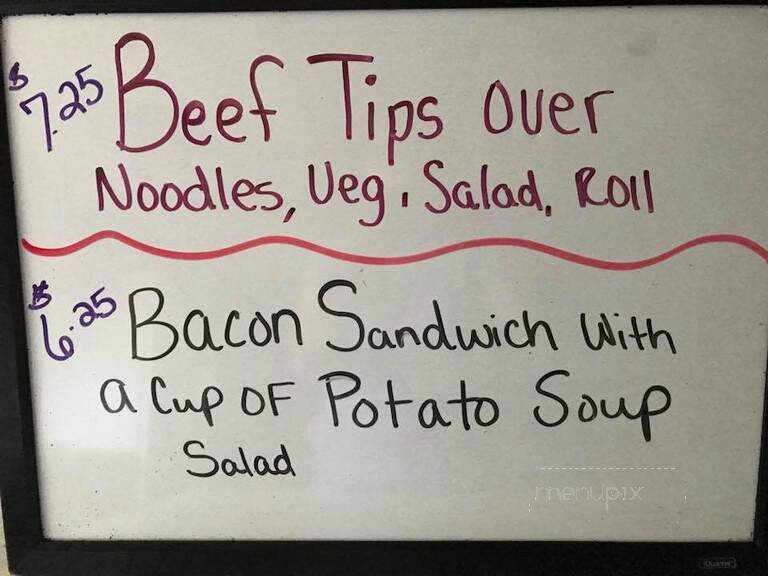 $7.25 Beef Tips over
Noodles, Veg. Salad, Roll
$6.25 Bacon Sandwich With
a Cup OF Potato Soup
Salad
menupix
Quartet